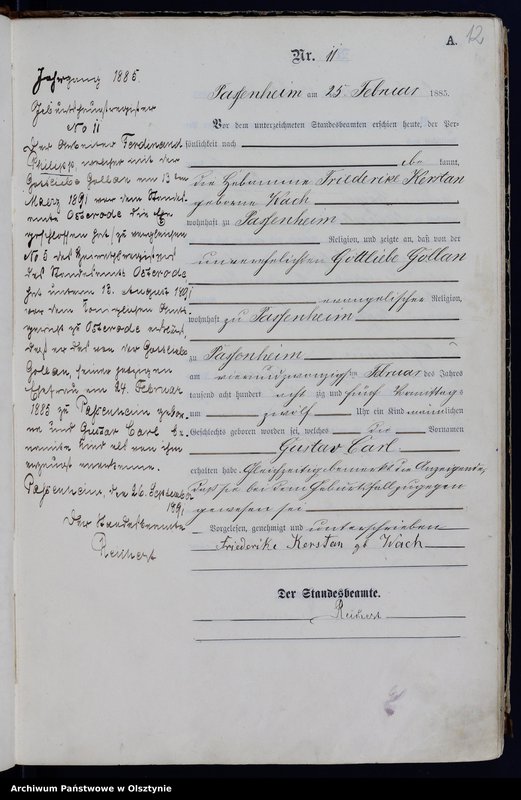 A.
12
Nr. 11
Passenheim am 25 Februar 1885.
Vor dem unterzeichneten Standesbeamten erschien heute, der Per-
sönlichkeit nach
kannt,
die Hebamme Friederike Kerstan
geborne Wach
wohnhaft zu Passenheim
Religion, und zeigte an, daß von der
unverehelichten Gottliebe Gollan
evangelischer Religion,
wohnhaft zu Passenheim
zu Passenheim
am vierundzwanzigsten Februar des Jahres
tausend acht hundert acht zig und fünf Vormittags
um zwölf Uhr ein Kind männlichen
Geschlechts geboren worden sei, welches die Vornamen
Gustav Carl
erhalten habe. Gleichzeitig bemerkt die Anzeigende,
daß sie bei dem Geburtsfall zugegen
gewesen sei
Vorgelesen, genehmigt und unterschrieben
Friederike Kerstan gb Wach
Der Standesbeamte.
Reinert
Jahrgang 1885.
Geburtshauptregister
No 11
Der Arbeiter Ferdinand
Philipp, welcher mit der
Gottliebe Gollan am 13 ten
März 1891 vor dem Standes-
amte Osterode die Ehe
geschlossen hat (zu vergleichen
No 5 des Heiratsregisters
des Standesamts Osterode
hat unterm 13. August 1891
vor dem Königlichen Amts-
gericht zu Osterode erklärt,
daß er das von der Gottliebe
Gollan, seiner jetzigen
Ehefrau am 24. Februar
1885 zu Passenheim gebor-
ne und Gustav Carl be-
nannte Kind als von ihm
erzeugt anerkenne.
Passenheim, den 26. September
1891
Der Standesbeamte
Reinert
Archiwum Państwowe w Olsztynie